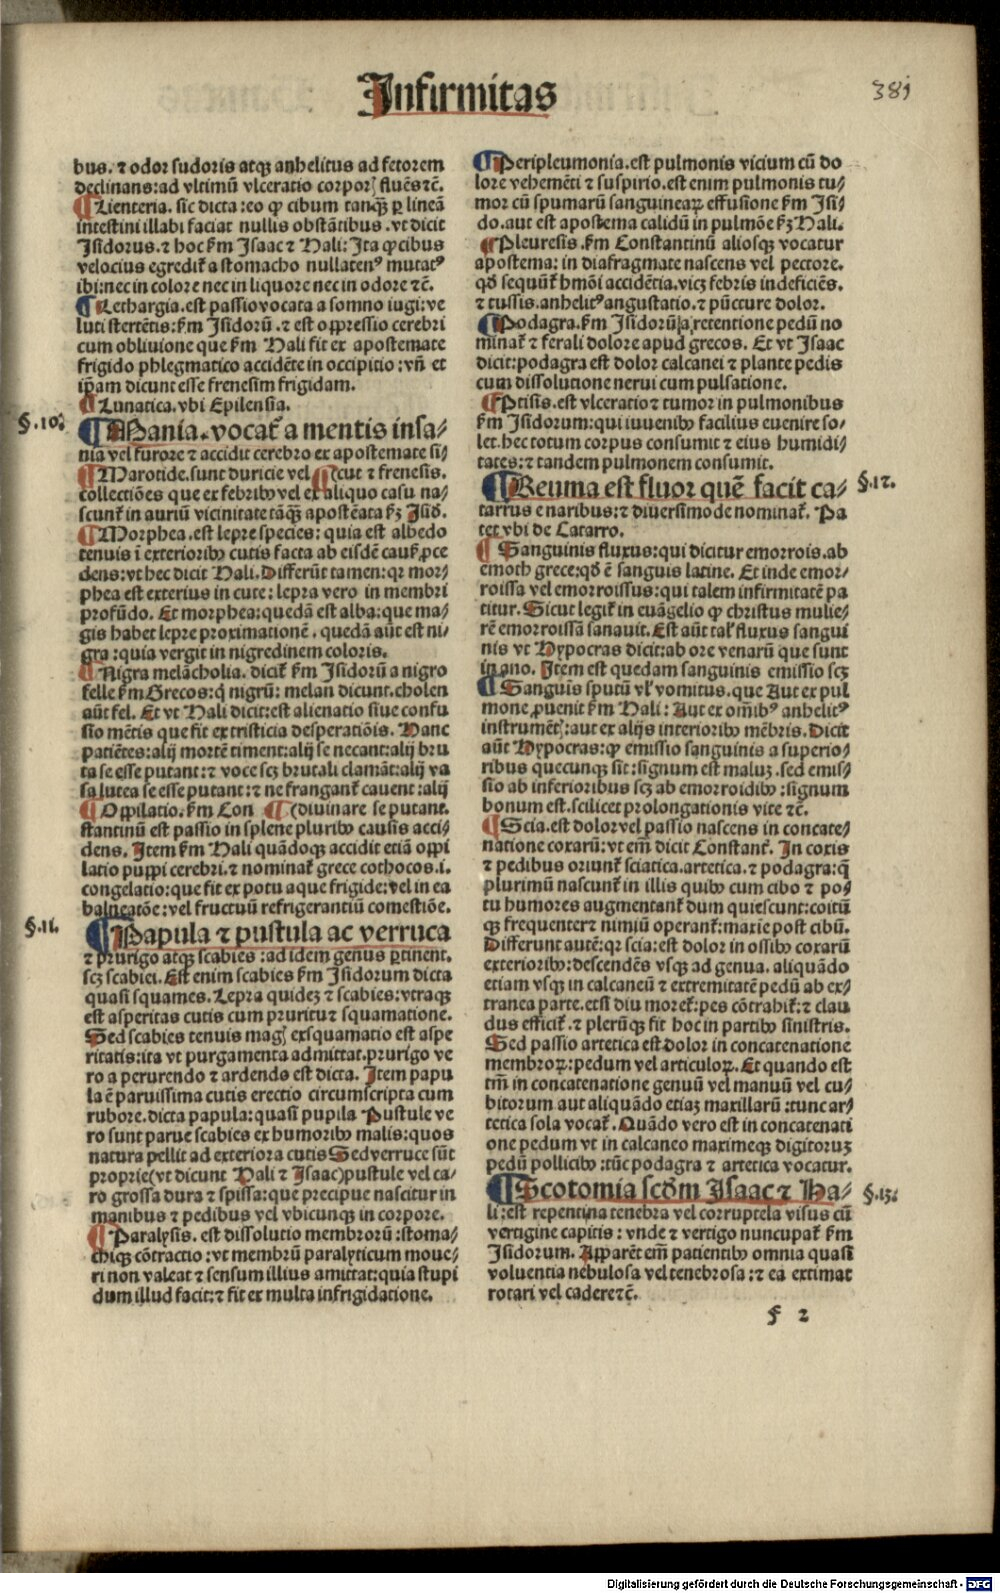 Infirmitas
381
bus. ⁊ odor sudoris atqꝫ anhelitus ad fetorem
declinans: ad vltimū vlceratio corporꝭ fluēs ⁊c̄.
¶ Lienteria. sic dicta: eo ꝙ cibum tanqꝫ ꝑ lineā
intestini illabi faciat nullis obstātibus. vt dicit
Isidorus. ⁊ hoc ẜm Isaac ⁊ Hali: Ita ꝙ cibus
velocius egredit᷑ a stomacho nullatenꝰ mutatꝰ
ibi: nec in colore nec in liquore nec in odore ⁊c̄.
¶ Lethargia. est passio vocata a somno iugi: ve
luti stertētis: ẜm Isidorū. ⁊ est oppressio cerebri
cum obliuione que ẜm Hali fit ex apostemate
frigido phlegmatico accidēte in occipitio: vn̄ et
ip̄am dicunt esse frenesim frigidam.
¶ Lunatica. vbi Epilensia.
§.10.
¶ Mania. vocat᷑ a mentis insa/
nia vel furore ⁊ accidit cerebro ex apostemate si/
¶ Parotide. sunt duricie vel ¶ cut ⁊ frenesis.
collectiōes que ex febribꝰ vel ex aliquo casu na/
scunt᷑ in auriū vicinitate tāqꝫ apostēata ẜꝫ Isid̄.
¶ Morphea. est lepre species: quia est albedo
tenuis ī exterioribꝰ cutis facta ab eisdē caus̄ ꝓce
dens: vt hec dicit Hali. Differūt tamen: qꝛ mor/
phea est exterius in cute: lepra vero in membri
profūdo. Et morphea: quedā est alba: que ma/
gis habet lepre proximationē. quedā aūt est ni/
gra: quia vergit in nigredinem coloris.
¶ Nigra melācholia. dicit᷑ ẜm Isidorū a nigro
felle ẜm Grecos: q̄ nigrū: melan dicunt. cholen
aūt fel. Et vt Hali dicit: est alienatio siue confu
sio mētis que fit ex tristicia desperatiōis. Hanc
patiētes: alij mortē timent: alij se necant: alij bru
ta se esse putant: ⁊ voce scꝫ brutali clamāt: alij va
sa lutea se esse putant: ⁊ ne frangant᷑ cauent: alij
¶ Oppilatio. ẜm Con ¶ (diuinare se putant.
stantinū est passio in splene pluribꝰ causis acci/
dens. Item ẜm Hali quādoqꝫ accidit etiā oppi
latio puppi cerebri. ⁊ nominat᷑ grece cothocos. i.
congelatio: que fit ex potu aque frigide: vel in ea
balneatōe: vel fructuū refrigerantiū comestiōe.
§.11.
¶ Papula ⁊ pustula ac verruca
⁊ prurigo atqꝫ scabies: ad idem genus ꝑtinent.
scꝫ scabiei. Est enim scabies ẜm Isidorum dicta
quasi squames. Lepra quideꝫ ⁊ scabies: vtraqꝫ
est asperitas cutis cum pruritu ⁊ squamatione.
Sed scabies tenuis magꝭ exsquamatio est aspe
ritatis: ita vt purgamenta admittat. prurigo ve
ro a perurendo ⁊ ardendo est dicta. Item papu
la ē paruissima cutis erectio circumscripta cum
rubore. dicta papula: quasi pupila Pustule ve
ro sunt parue scabies ex humoribꝰ malis: quos
natura pellit ad exteriora cutis Sed verruce sūt
proprie (vt dicunt Hali ⁊ Isaac) pustule vel ca/
ro grossa dura ⁊ spissa: que precipue nascitur in
manibus ⁊ pedibus vel vbicunqꝫ in corpore.
¶ Paralysis. est dissolutio membrorū: stoma/
chiqꝫ cōtractio: vt membrū paralyticum moue/
ri non valeat ⁊ sensum illius amittat: quia stupi
dum illud facit: ⁊ fit ex multa infrigidatione.
¶ Peripleumonia. est pulmonis vicium cū do
lore vehemēti ⁊ suspirio. est enim pulmonis tu/
mor cū spumarū sanguinearꝫ effusione ẜm Isi/
do. aut est apostema calidū in pulmōe ẜꝫ Hali.
¶ Pleuresis. ẜm Constantinū aliosqꝫ vocatur
apostema: in diafragmate nascens vel pectore.
qd̄ sequūt᷑ hmōi accidētia. vicꝫ febris indeficiēs.
⁊ tussis. anhelitꝰ angustatio. ⁊ pūcture dolor.
¶ Podagra. ẜm Isidorū a retentione pedū no
minat᷑ ⁊ ferali dolore apud grecos. Et vt Isaac
dicit: podagra est dolor calcanei ⁊ plante pedis
cum dissolutione nerui cum pulsatione.
¶ Ptisis. est vlceratio ⁊ tumor in pulmonibus
ẜm Isidorum: qui iuuenibꝰ facilius euenire so/
let. hec totum corpus consumit ⁊ eius humidi/
tates: ⁊ tandem pulmonem consumit.
¶ Reuma est fluor quē facit ca/
§.12.
tarrus e naribus: ⁊ diuersimode nominat᷑. Pa
tet vbi de Catarro.
¶ Sanguinis fluxus: qui dicitur emorrois. ab
emoth grece: qd̄ ē sanguis latine. Et inde emor/
roissa vel emorroissus: qui talem infirmitatē pa
titur. Sicut legit᷑ in euāgelio ꝙ christus mulie/
rē emorroissā sanauit. Est aūt tal᷑ fluxus sangui
nis vt Hypocras dicit: ab ore venarū que sunt
in ano. Item est quedam sanguinis emissio scꝫ
¶ Sanguis sputū vl᷑ vomitus. que Aut ex pul
mone ꝓuenit ẜm Hali: Aut ex om̄ibꝰ anhelitꝰ
instrumētꝭ: aut ex alijs interioribꝰ mēbris. Dicit
aūt Hypocras: ꝙ emissio sanguinis a superio/
ribus quecunqꝫ sit: signum est maluꝫ. sed emis/
sio ab inferioribus scꝫ ab emorroidibꝰ: signum
bonum est. scilicet prolongationis vite ⁊c̄.
¶ Scia. est dolor vel passio nascens in concate/
natione coxarū: vt em̄ dicit Constant᷑. In coxis
⁊ pedibus oriunt᷑ sciatica. artetica. ⁊ podagra: q̄
plurimū nascunt᷑ in illis quibꝰ cum cibo ⁊ po/
tu humores augmentant᷑ dum quiescunt: coitū
qꝫ frequenter ⁊ nimiū operant᷑: maxie post cibū.
Differunt autē: qꝛ scia: est dolor in ossibꝰ coxarū
exterioribꝰ: descendēs vsqꝫ ad genua. aliquādo
etiam vsqꝫ in calcaneū ⁊ extremitatē pedū ab ex/
tranea parte. etsi diu moret᷑: pes cōtrahit᷑: ⁊ clau
dus efficit᷑. ⁊ plerūqꝫ fit hoc in partibꝰ sinistris.
Sed passio artetica est dolor in concatenatione
membroꝝ: pedum vel articuloꝝ. Et quando est
tm̄ in concatenatione genuū vel manuū vel cu/
bitorum aut aliquādo etiaꝫ maxillarū: tunc ar/
tetica sola vocat᷑. Quādo vero est in concatenati
one pedum vt in calcaneo maximeqꝫ digitoruꝫ
pedū pollicibꝰ: tūc podagra ⁊ artetica vocatur.
¶ Scotomia scd̄m Isaac ⁊ Ha/
§.13.
li: est repentina tenebra vel corruptela visus cū
vertigine capitis: vnde ⁊ vertigo nuncupat᷑ ẜm
Isidorum. Apparēt em̄ patientibꝰ omnia quasi
voluentia nebulosa vel tenebrosa: ⁊ ea extimat
rotari vel cadere ⁊c̄.
f 2
Digitalisierung gefördert durch die Deutsche Forschungsgemeinschaft - DFG